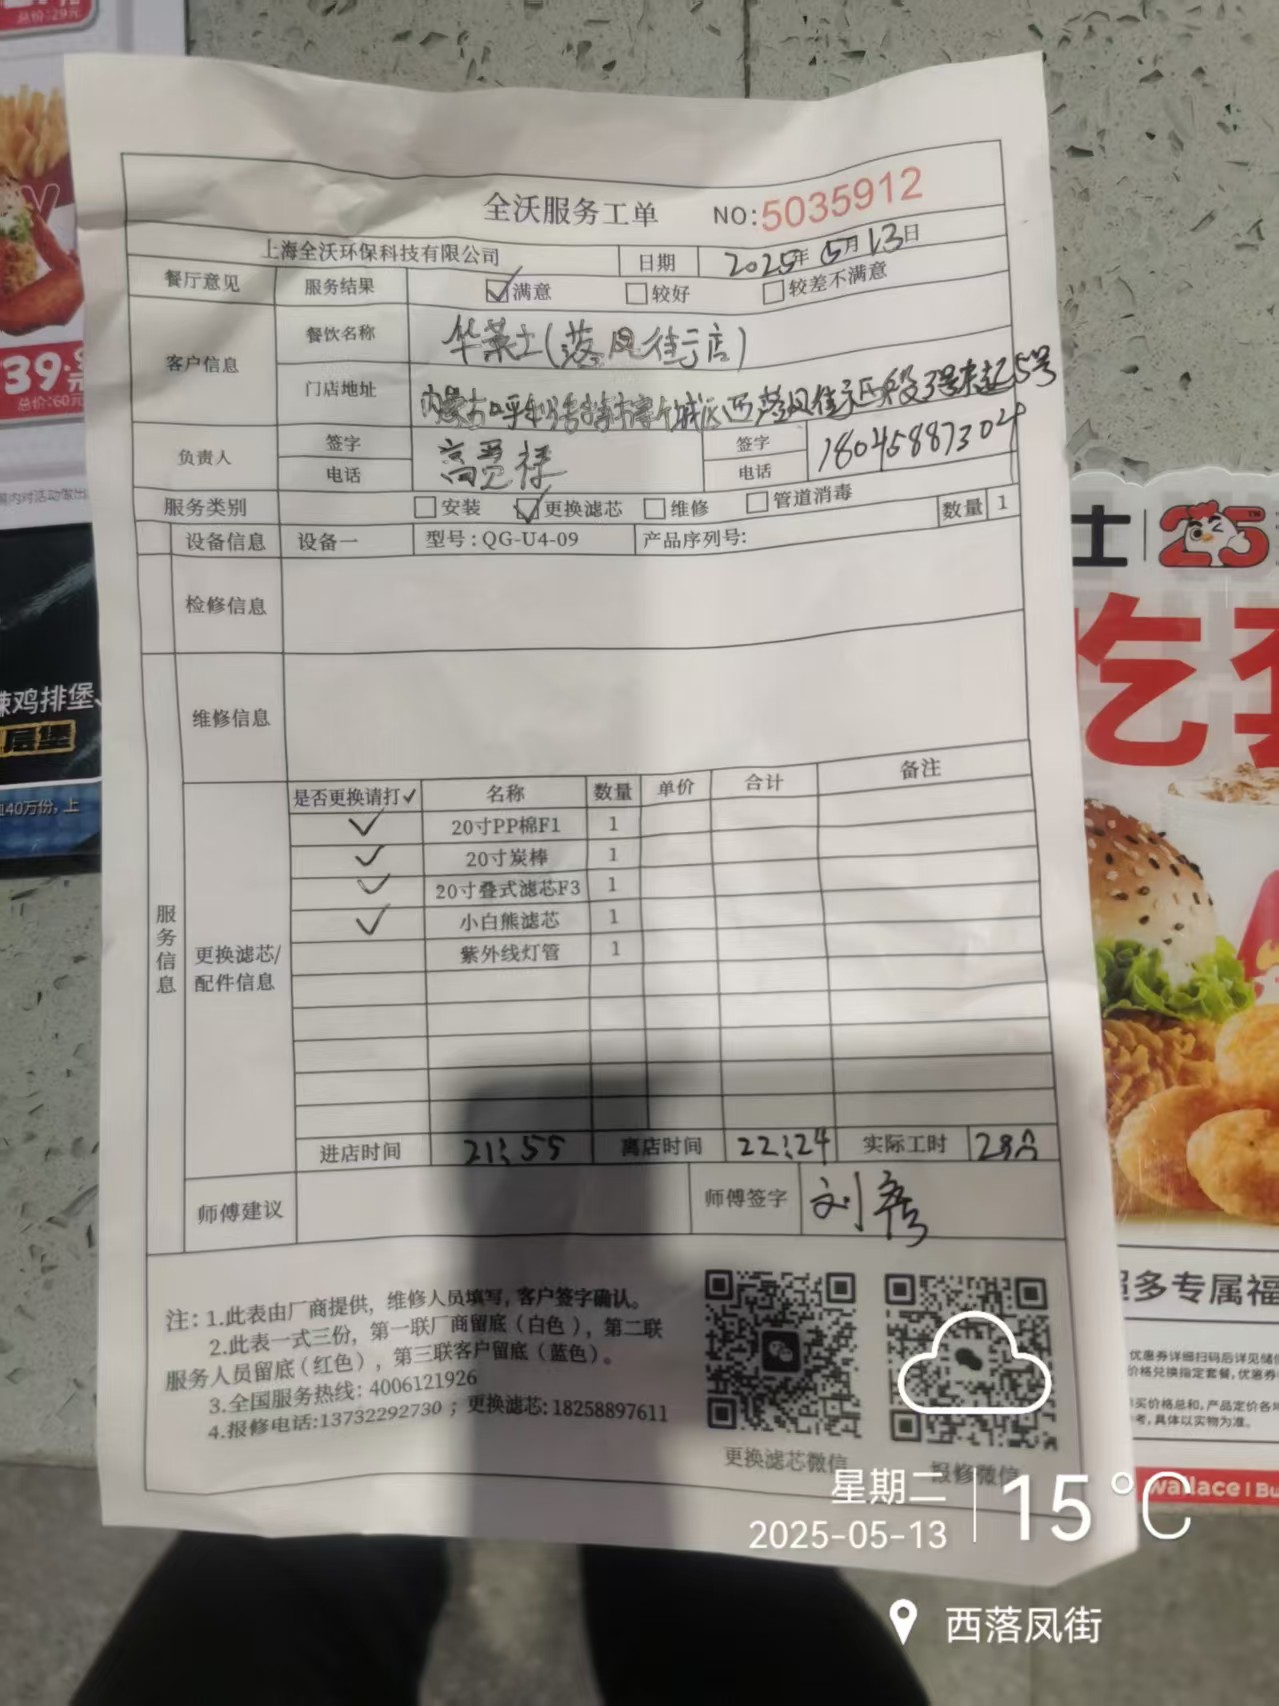 总价:29元
39.9元
总价:60元
辣鸡排堡、
层堡
140万份，上
全沃服务工单 NO:5035912
上海全沃环保科技有限公司 日期 2025年5月13日
餐厅意见 服务结果 ☑满意 □较好 □较差不满意
客户信息 餐饮名称 华莱士(落凤街店)
门店地址
负责人 签字 签字
电话 电话 18045887304
服务类别 □安装 ☑更换滤芯 □维修 □管道消毒 数量 1
设备信息 设备一 型号：QG-U4-09 产品序列号:
检修信息
维修信息
服务信息
更换滤芯/
配件信息
是否更换请打✓ 名称 数量 单价 合计 备注
✓ 20寸PP棉F1 1
✓ 20寸炭棒 1
✓ 20寸叠式滤芯F3 1
✓ 小白熊滤芯 1
紫外线灯管 1
进店时间 21:55 离店时间 22:24 实际工时
师傅建议 师傅签字
注：1.此表由厂商提供，维修人员填写，客户签字确认。
2.此表一式三份，第一联厂商留底（白色），第二联
服务人员留底（红色），第三联客户留底（蓝色）。
3.全国服务热线：4006121926
4.报修电话:13732292730；更换滤芯:18258897611
更换滤芯微信 报修微信
士 25
吃套
超多专属福
优惠券详细扫码后详见储
价格兑换指定套餐，优惠券
买价格总和，产品定价各地
考，具体以实物为准。
wallace | Bu
星期二
2025-05-13
15°C
西落凤街